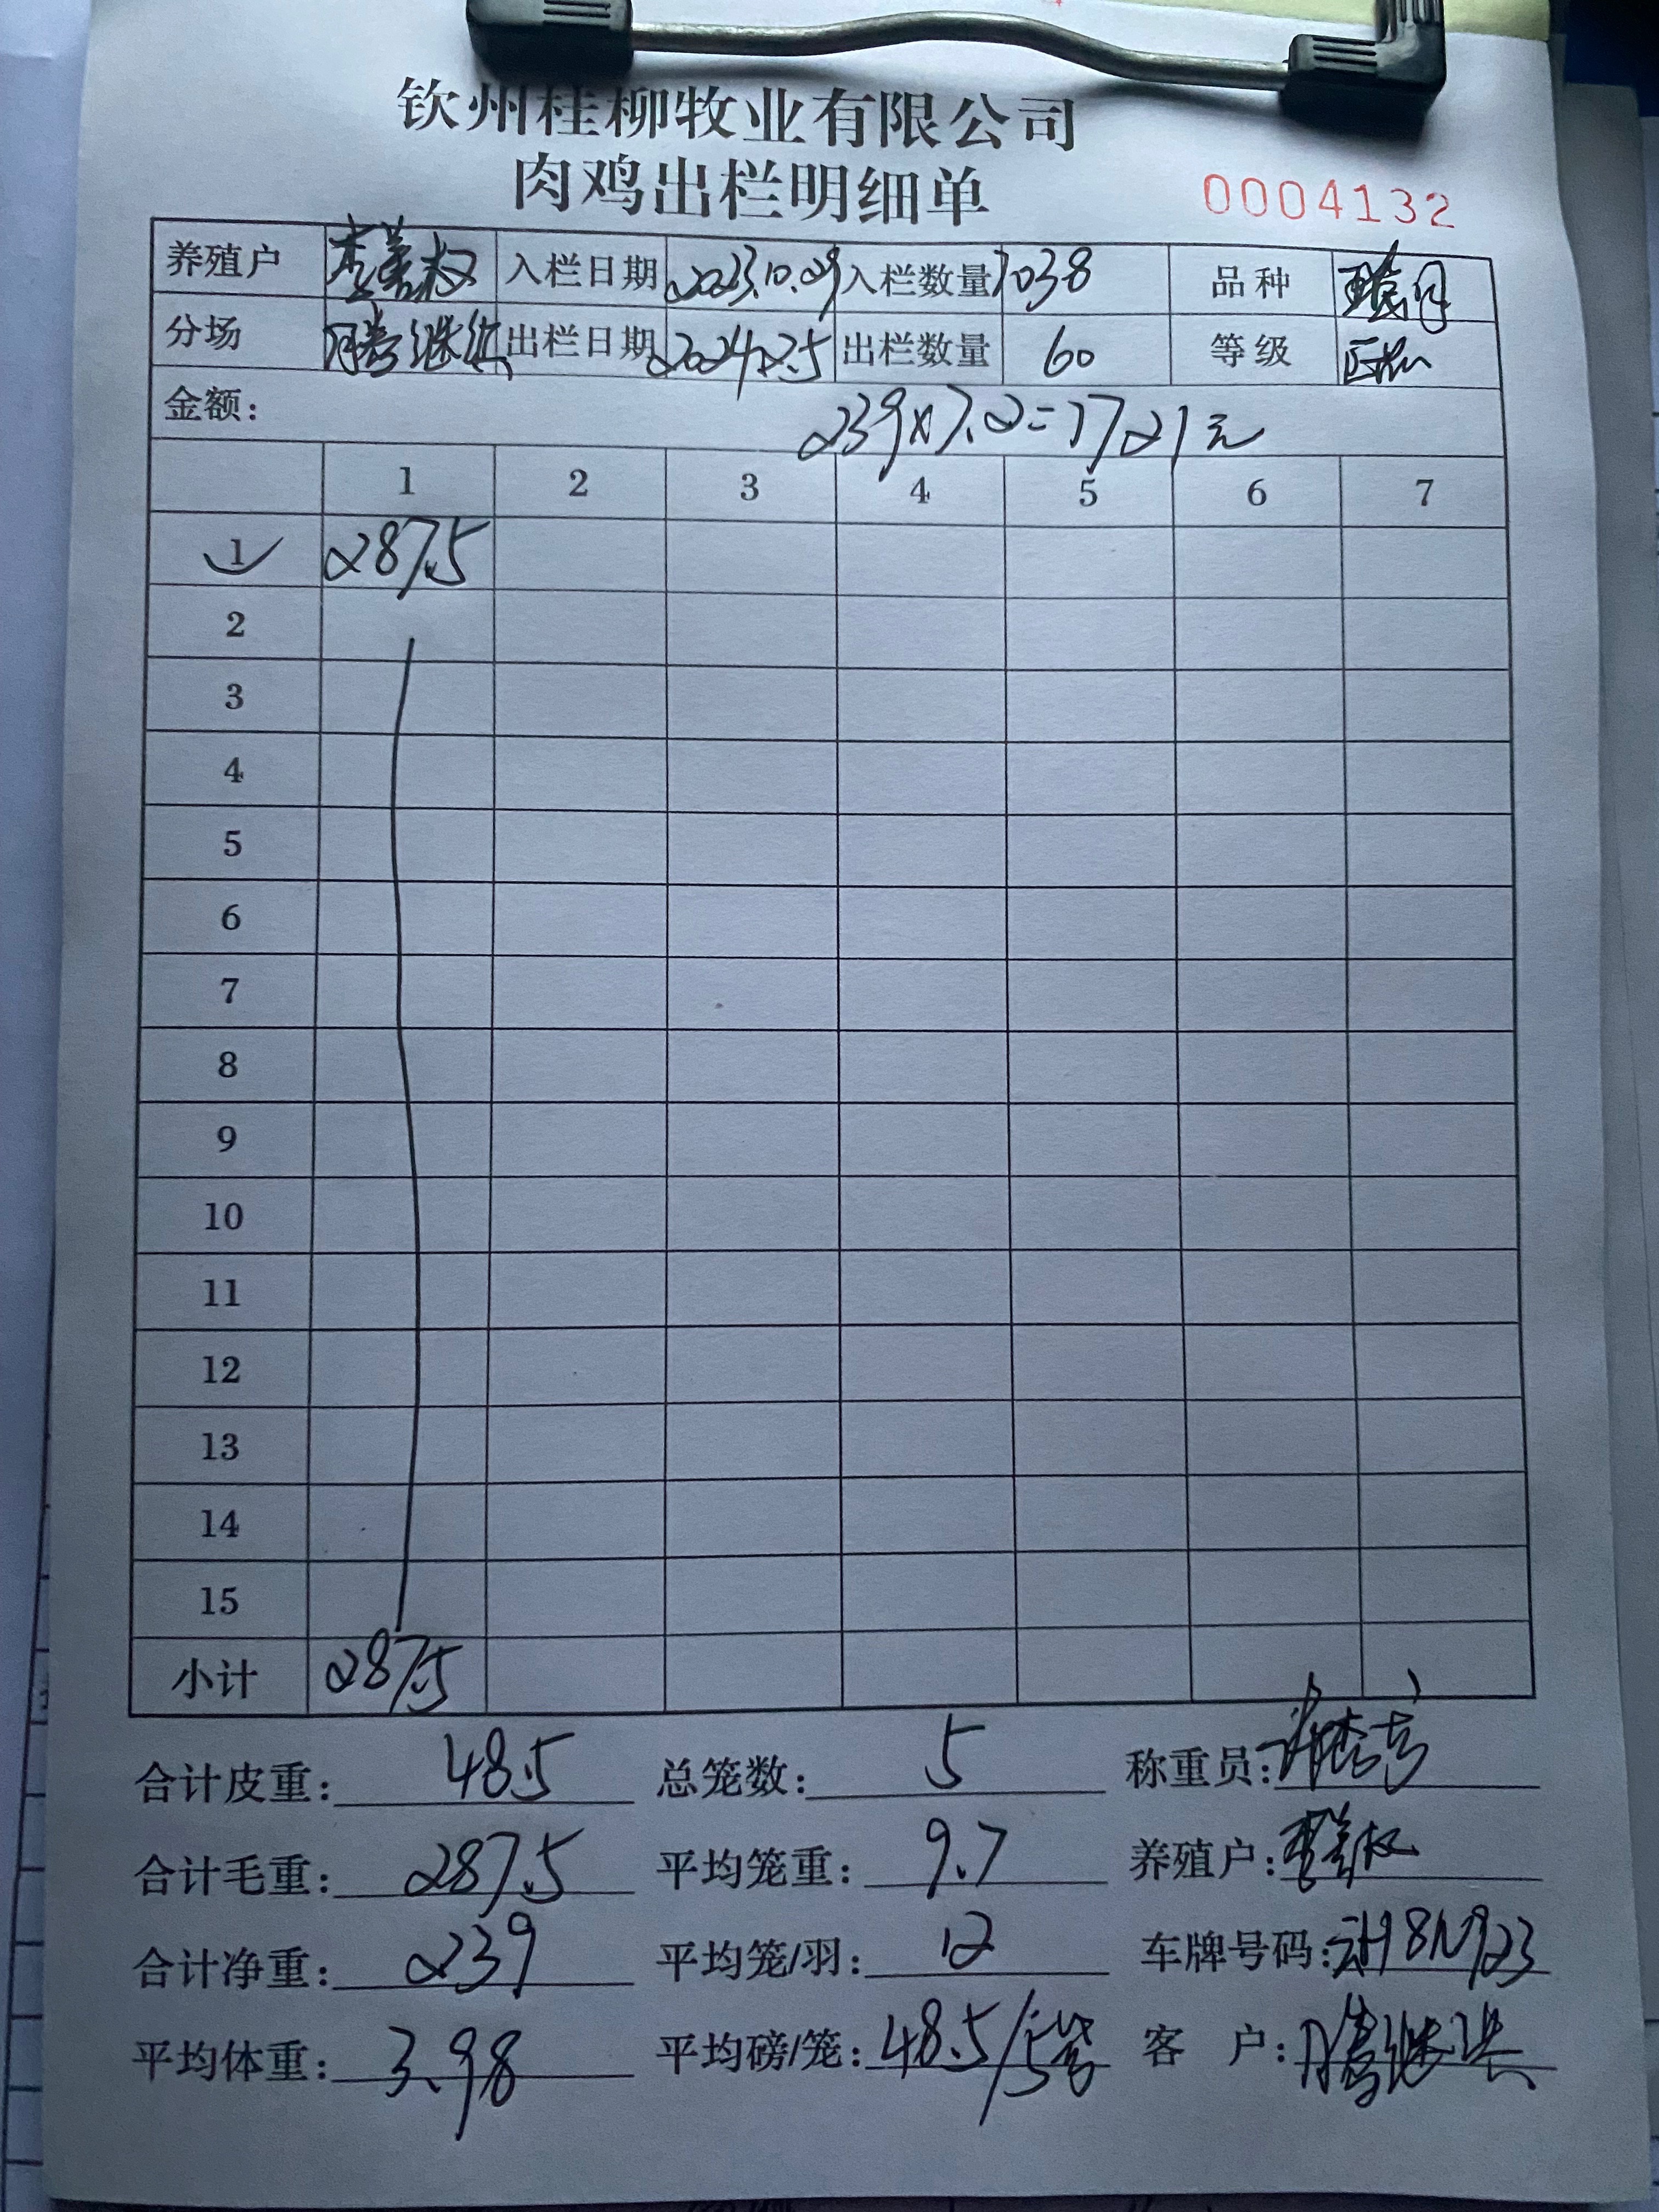 钦州桂柳牧业有限公司
肉鸡出栏明细单
0004132
养殖户 李善权 入栏日期 2023.10.29 入栏数量 7038 品种
分场 滕继洪 出栏日期 2024.2.5 出栏数量 60 等级
金额: 239×7.2=1721元
1 2 3 4 5 6 7
1 287.5
2
3
4
5
6
7
8
9
10
11
12
13
14
15
小计 287.5
合计皮重: 48.5 总笼数: 5 称重员:
合计毛重: 287.5 平均笼重: 9.7 养殖户: 李善权
合计净重: 239 平均笼/羽: 12 车牌号码: 云H8N923
平均体重: 3.98 平均磅/笼: 48.5/5笼 客 户: 滕继洪